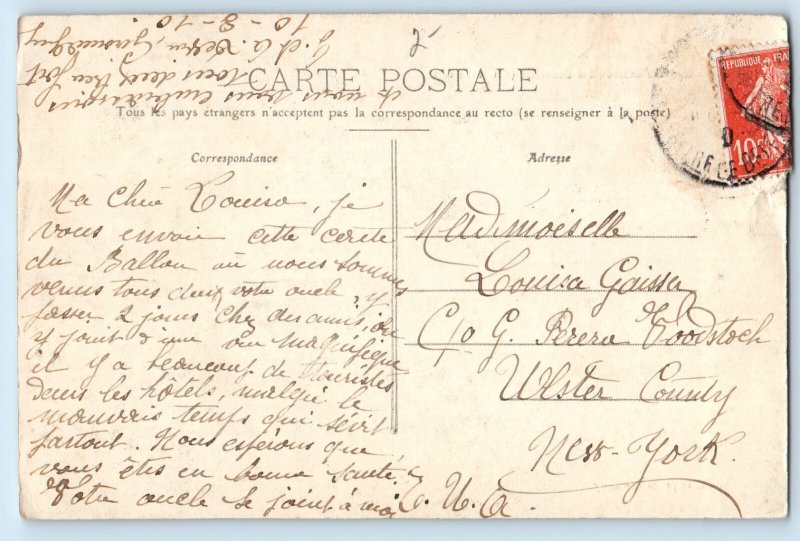 CARTE POSTALE
Tous les pays étrangers n'acceptent pas la correspondance au recto (se renseigner à la poste)
Correspondance
Ma chère Louisa, je
vous envoie cette carte
du Ballon où nous sommes
venus tous deux votre oncle, y
passer 2 jours chez des amis, on
y jouit d'une vue magnifique
il y a beaucoup de touristes
dans les hôtels, malgré le
mauvais temps qui sévit
partout. Nous espérons que
vous êtes en bonne santé.
Votre oncle se joint à moi
et vous embrassons
tous deux bien fort
10-8-10
Adresse
Mademoiselle
Louisa Gaisser
C/o G. Perera Woodstock
Ulster County
New-York.
U. A.
2
REPUBLIQUE FRA
10